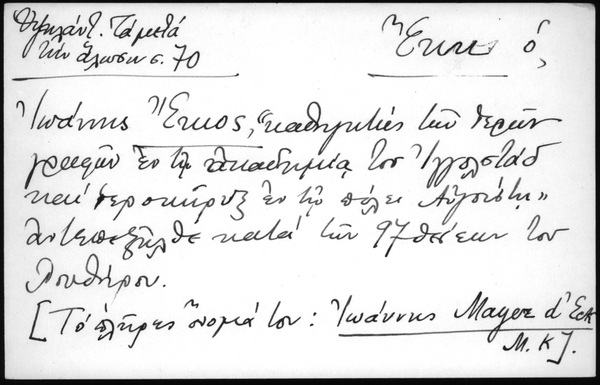 Ὑψηλάντ. Τά μετά
τήν ἅλωσιν σ. 70
Ἔκκ ὁ,
Ἰωάννης Ἔκιος, "καθηγητής τῶν ἱερῶν
γραφῶν ἐν τῇ ἀκαδημίᾳ τοῦ Ἰγγολστάδ
καί ἱεροκήρυξ ἐν τῇ πόλει Αὐγούστῃ"
ἀντεπεξῆλθε κατά τῶν 97 θέσεων τοῦ
Λουθήρου.
[Τό πλῆρες ὄνομά του: Ἰωάννης Mayer d'Eck
Μ. Κ].